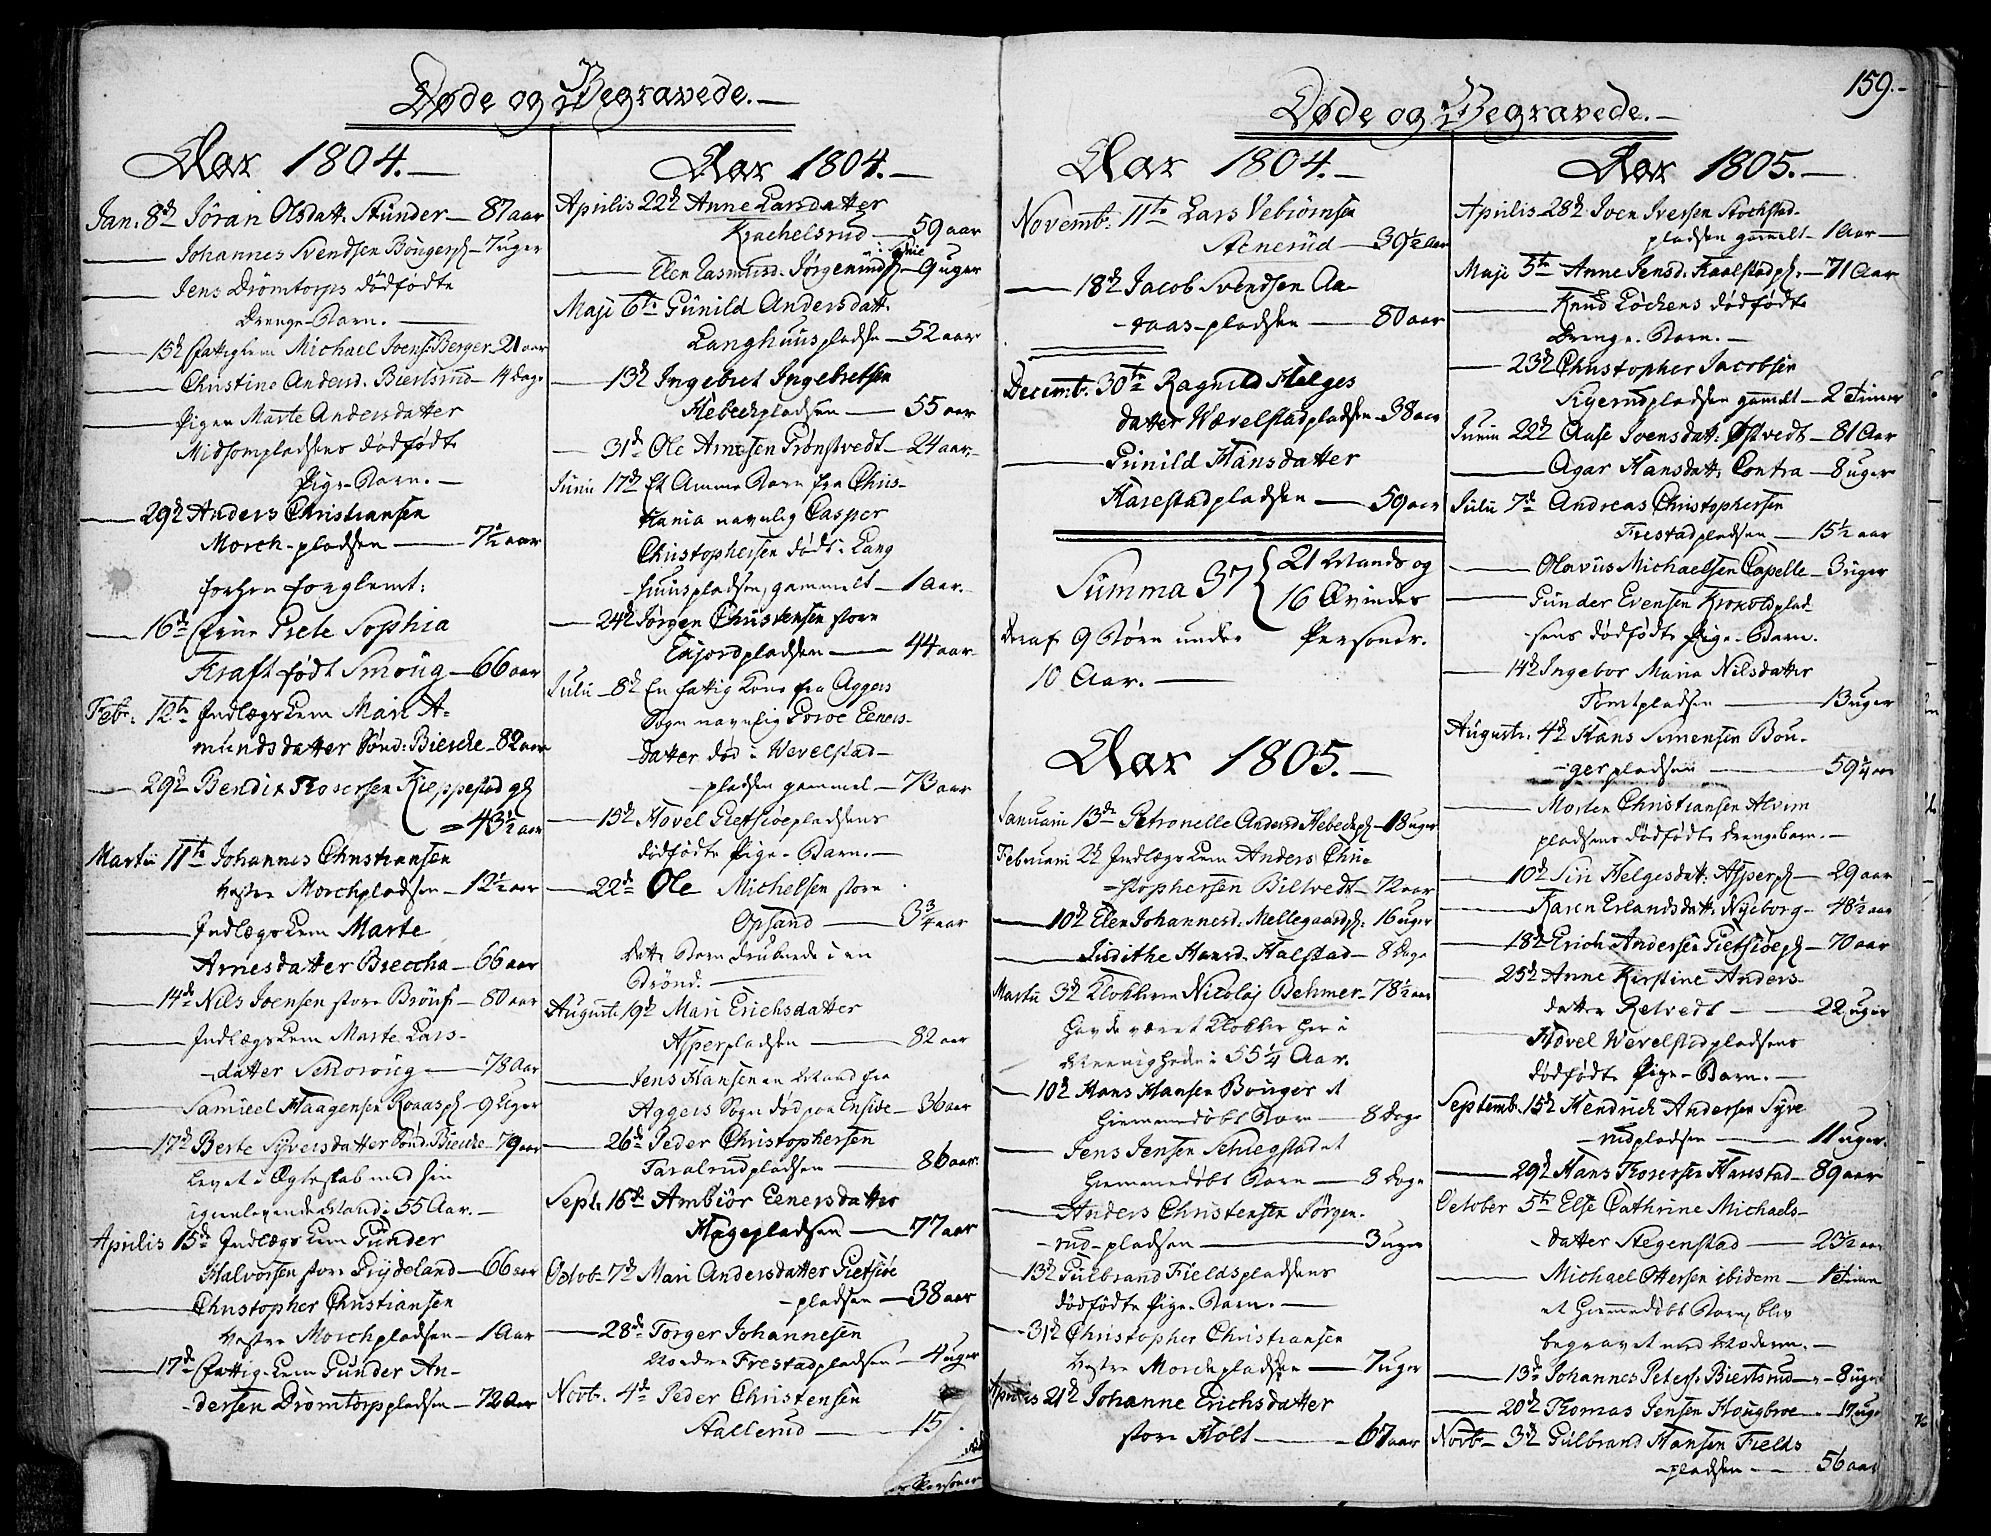 Døde og Begravede.
Aar 1804.
Jan. 8de Jøran Olsdatt. Stunder 87 aar
Johannes Svendsen Bøngerpl. 7 uger
Jens Drømtorps dødfødte
Drenge-Barn.
15de Fattiglem Michael Joens. Berger 21 aar
Christine Andersd. Biertsrud 14 dage
Pigen Marte Andersdatter
Midsempladsens dødfødte
Pige-Barn.
29de Anders Christiansen
Morch-pladsen 7 1/2 aar
forhen forglemt:
16de Frue Grete Sophia
Kraft født Smoug 66 aar
Febr. 12te Indlægslem Mari A-
mundsdatter Sønd: Biercke 82 aar
29de Bendix Thoresen Kieppestad
43 1/2 aar
Martii 11te Johannes Christiansen
Vestre Morchpladsen 12 1/2 aar
Indlægslem Marte
Arnesdatter Breccha 66 aar
14de Nils Joensen store Brønst 80 aar
Indlægslem Marte Lars-
datter Schoroug 78 Aar
Samuel Haagensen Roaaspl. 9 Uger
17de Berte Syversdatter Sønd. Biercke 79 aar
Levet i Ægteskab med sin
igienlevende Mand i 55 Aar.
Aprilis 15de Indlægslem Gunder
Halvorsen store Grydeland 66 aar
Christopher Christiansen
Vestre Morchpladsen 1 Aar
17de Fattig-Lem Gunder An-
dersen Drømtorppladsen 72 Aar
Aar 1804.
Aprilis 22de Anne Larsdatter
Krachelsrud 59 aar
Elen Rasmusd. Jørgenrud 9 uger
Maji 6te Gunild Andersdatt.
Langhuuspladsen 52 aar
13de Ingebret Ingebretsen
Hebechpladsen 55 aar
31de Ole Arnesen Grønstvedt 24 aar
Junii 17de Et Amme Barn fra Chris-
tiania navnlig Casper
Christophersen død i Lang
huuspladsen, gammelt 1 Aar.
24de Jørgen Christensen store
Exjordpladsen 44 aar
Julii 8de En fattig Kone fra Aggers
Sogn navnlig Goroe Eeners-
datter død i Wevelstad-
pladsen gammel 73 aar
15de Hovel Gietsiøepladsens
dødfødte Pige-Barn.
22de Ole Michelsen store
Opsand 3 3/4 aar
dette Barn druknede i en
Brønd.
Augusti 19de Mari Erichsdatter
Asperpladsen 82 aar
Jens Hansen en Mand fra
Aggers Sogn død paa Enside 36 aar
26de Peder Christophersen
Taralrudpladsen 86 aar
Sept. 16de Ambiør Eenersdatter
Hagepladsen 77 aar
Octob. 7de Mari Andersdatter Gietsiøe
pladsen 38 aar
28de Torger Johannesen
Nordre Frestadpladsen 4 uger
Novb. 4de Peder Christensen
Aallerud 15
Personer
159.
Døde og Begravede.
Aar 1804.
Novemb. 11te Lars Vebiørnsen
Aenerud 39 1/2 Aar
18de Jacob Svendsen Aa-
raas-pladsen 80 aar
Decemb. 30te Ragnild Helges
datter Wævelstadpladsen 38 aar
Gunild Hansdatter
Harestadpladsen 59 aar
Summa 37 { 21 Mands og
16 Qvindes
Personer.
Deraf 9 Børn under
10 Aar.
Aar 1805.
Januarii 13de Petronelle Andersd Hebechpl 18 uger
Februarii 2de Indlægslem Anders Chri-
stophersen Biltvedt 72 aar
10de Elen Johannesd. Mellegaardspl. 16 uger
Judithe Hansd. Halstad 8 dage
Martii 3de Klokkeren Nicolaj Behmer 78 1/2 aar
havde været Klokker her i
Menigheden i 55 1/4 Aar.
10de Hans Hansen Bonger et
hiemmedøbt Barn 8 dage
Jens Jensen Schiegstad et
hiemmedøbt Barn 8 dage
Anders Christensen Jørgen-
rud-pladsen 3 uger
13de Gulbrand Fieldspladsens
dødfødte Pige-Barn.
31de Christopher Christiansen
Vestre Morchpladsen 7 uger
Aprilis 21de Johanne Erichsdatter
store Holt 67 aar
Aar 1805.
Aprilis 28de Joen Iversen Stochstad-
pladsen gammelt 1 Aar
Maji 5te Anne Jensd. Kaalstadpl. 71 Aar
Knud Løckens dødfødte
Drenge-Barn.
23de Christopher Jacobsen
Sigerudpladsen gamelt 2 Timer
Junii 22de Aase Joensdatt. Østvedt 81 Aar
Agar Hansdatt. Contra 8 uger
Julii 7de Andreas Christophersen
Frestadpladsen 15 1/2 aar
Olavus Michaelsen Capelle 3 uger
Gunder Evensen Kroxoldplad-
sens dødfødte Pige-Barn.
14de Ingebor Maria Nilsdatter
Tomtpladsen 13 uger
Augusti 4de Hans Simensen Bou-
gerpladsen 59 1/4 aar
Morten Christiansen Alvim
pladsens dødfødte drengebarn.
10de Siri Helgesdatt. Asperpl. 29 aar
Karen Erlandsdatt. Nyeborg 48 1/2 aar
18de Erich Andersen Gietsiøepl 70 aar
25de Anne Kirstine Anders-
datter Retvedt 22 uger
Hovel Wevelstadpladsens
dødfødte Pige-Barn.
Septemb. 15de Hendrich Andersen Syve
rudpladsen 11 uger
29de Hans Thoresen Harestad 89 aar
October 5te Else Cathrine Michaels-
datter Stegenstad 23 1/2 aar
Michael Ottersen ibidem 1 Time
et hiemmedøbt Barn, blev
begravet med Moderen.
13de Johannes Peters. Biertsrud 8 uger
20de Thomas Jensen Hougbroe 17 uger
Novb. 3de Gulbrand Hansen Fields
pladsen 56 aar